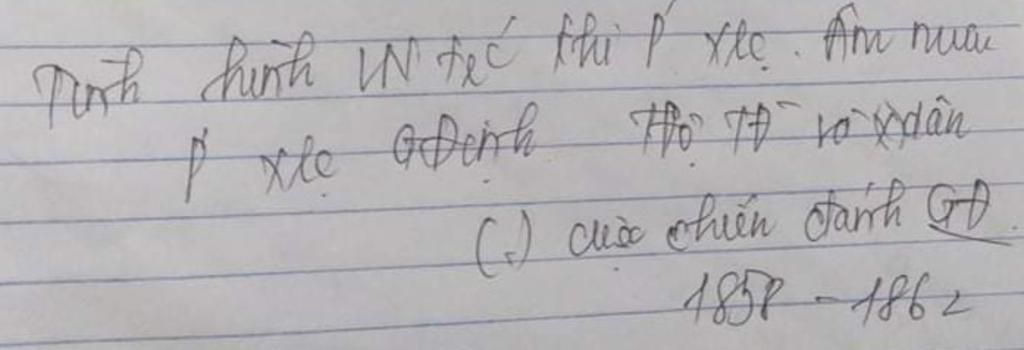 Tình hình VN trc khi P xlc. Âm mưu
P xlc GĐịnh Hộ TĐ và dân
(.) cuộc chiến đánh GĐ.
1858 - 1862